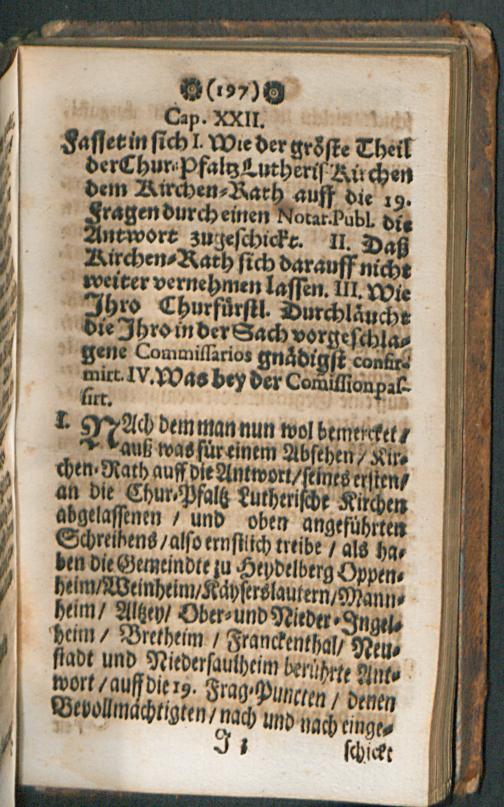 (197)
Cap. XXII.
Fasset in sich I. Wie der gröste Theil
der Chur-Pfaltz Lutheris Kirchen
dem Kirchen-Rath auff die 19.
Fragen durch einen Notar. Publ. die
Antwort zugeschickt. II. Daß
Kirchen-Rath sich darauff nicht
weiter vernehmen lassen. III. Wie
Ihro Churfürstl. Durchläucht
die Ihro in der Sach vorgeschla-
gene Commissarios gnädigst confir-
mirt. IV. Was bey der Comission pas-
sirt.
I. NAch dem man nun wol bemercket/
auß was für einem Absehen / Kir-
chen-Rath auff die Antwort/seines ersten/
an die Chur-Pfaltz Lutherische Kirchen
abgelassenen / und oben angeführten
Schreibens / also ernstlich treibe / als ha-
ben die Gemeindte zu Heydelberg Oppen-
heim/Weinheim/Käyserslautern/Mann-
heim / Altzey/ Ober-und Nieder-Ingel-
heim / Bretheim / Franckenthal/ Neu-
stadt und Niedersaulheim berührte Ant-
wort / auff die 19. Frag-Puncten / denen
Bevollmächtigten / nach und nach einge-
schickt